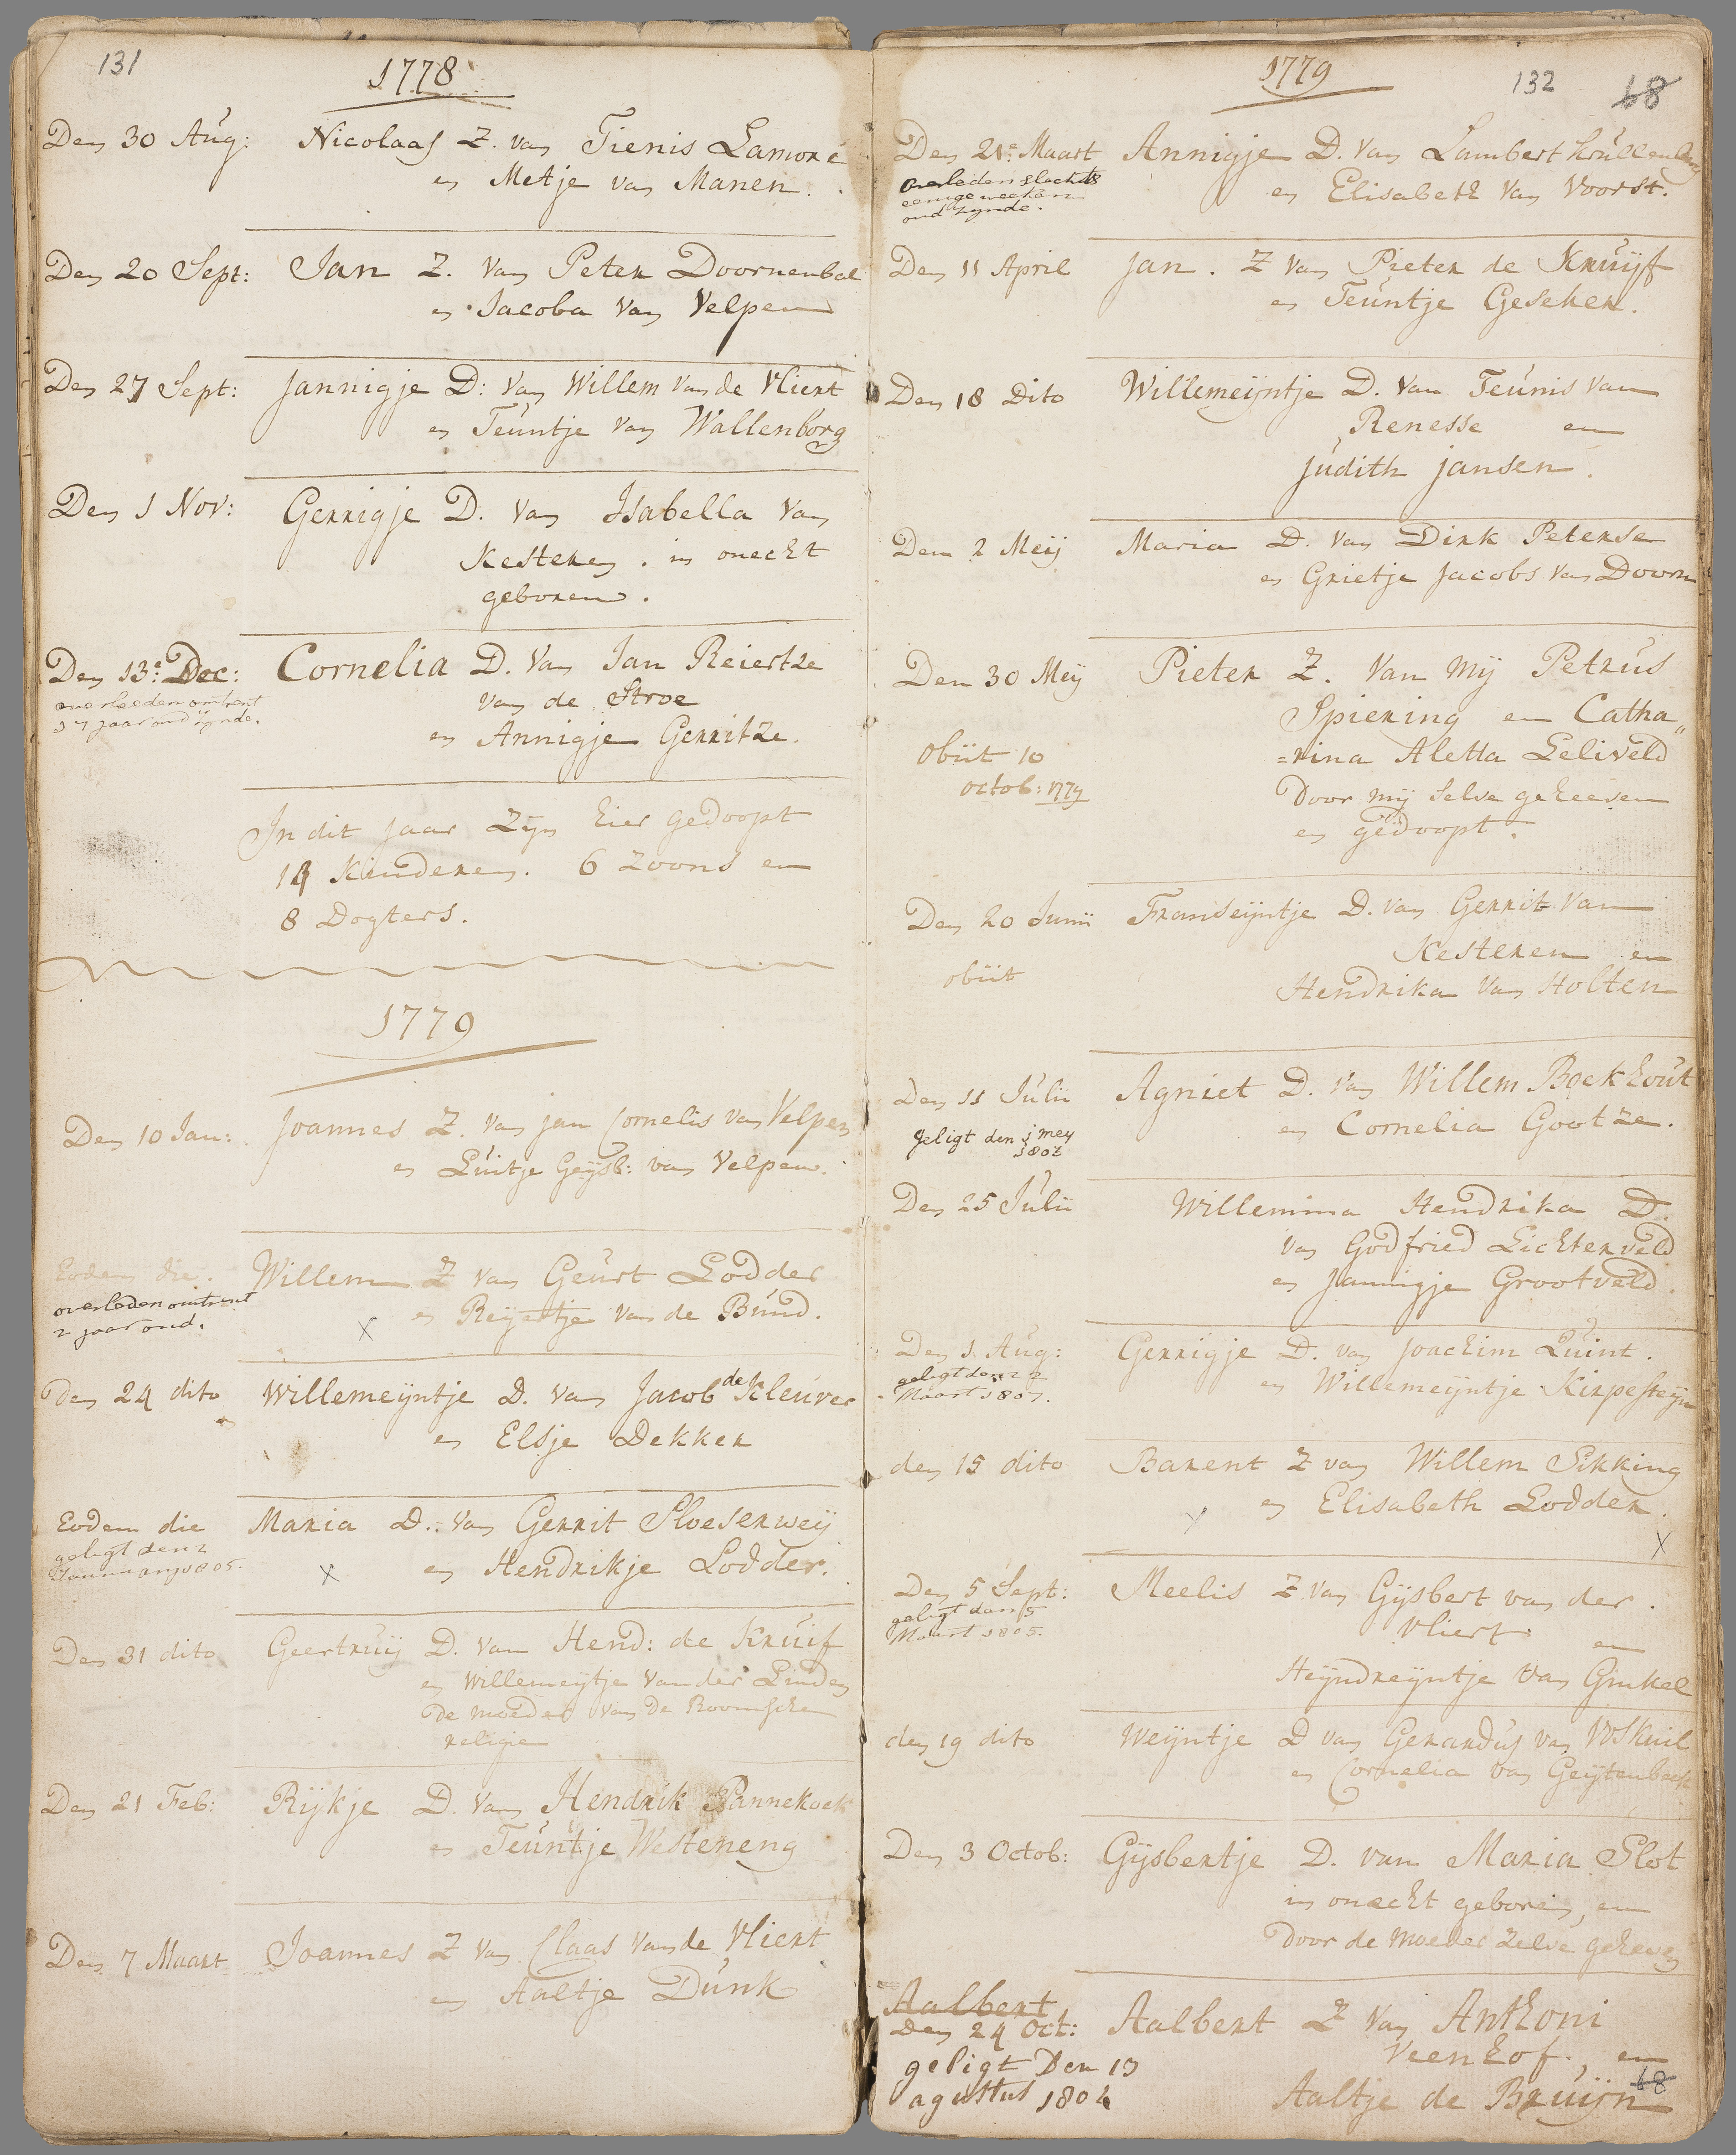 131
1778
Den 30 Aug: Nicolaas Z. van Tienis Lamoré
en Metje van Manen.
Den 20 Sept: Jan Z. van Peter Doornenbal
en Jacoba van Velpen
Den 27 Sept: Jannigje D: van Willem van de Vliert
en Teuntje van Wallenborg
Den 1 Nov: Gerrigje D. van Isabella van
Kesteren. in onecht
geboren.
Den 13e Dec: Cornelia D. van Jan Reiertze
overleeden omtrent
17 jaar oud zynde.
van de Stroe
en Annigje Gerritze.
In dit jaar zyn hier gedoopt
14 kinderen. 6 zoons en
8 Dogters.
1779
Den 10 Jan: Joannes Z. van jan Cornelis van Velpen
en Luitje Geijsb: van Velpen.
Eodem die. Willem Z van Geurt Lodder
overleden omtrent
2 jaar oud.
X en Reijertje van de Bund.
den 24 dito Willemeijntje D. van Jacob de Kleuver
en Elsje Dekker
Eodem die Maria D. van Gerrit Sloeserweij
geligt den 2
Januuary 1805.
X en Hendrikje Lodder.
Den 31 dito Geertruij D. van Hend: de Kruif
en Willemeijtje van der Linden
De moeder van de Roomsche
religie
Den 21 Feb: Rijkje D. van Hendrik Pannekoek
en Teuntje Westeneng
Den 7 Maart Joannes Z van Claas van de Vliert
en Aaltje Dunk
1779
132
68
Den 21e Maart Annigje D. van Lambert
overleden slechts
eenige weeken
oud zynde.
en Elisabeth van Voorst.
Den 11 April jan. Z van Pieter de Kruijf
en Teuntje Geseher.
Den 18 Dito Willemeijntje D. van Teunis van
Renesse en
Judith jansen.
Den 2 Meij Maria D. van Dirk Peterse
en Grietje Jacobs van Doorn
Den 30 Meij Pieter Z. van mij Petrus
Spiering en Catha„
=rina Aletta Leliveld
obiit 10
octob: 1779
Door mij selve geheeven
en gedoopt.
Den 20 Junii Franseijntje D. van Gerrit van
Kesteren en
obiit
Hendrika van Holten
Den 11 Julii Agniet D. van Willem Boekhout
geligt den 1 mey
1802
en Cornelia Gootze.
Den 25 Julii Willemina Hendrika D.
van Godfried Lichterveld
en Jannigje Grootveld.
Den 1. Aug: Gerrigje D. van Joachim Quint.
geligt den 22
Maart 1807.
en Willemeijntje Kirpesteijn
den 15 dito Barent Z van Willem Sikking
X en Elisabeth Lodder.
X
Den 5 Sept: Meelis Z van Gijsbert van der
geligt den 5
Maart 1805.
Vliert en
Heijndreijntje van Ginkel
den 19 dito Weijntje D van Gerardus van Voskuil
en Cornelia van Geijtenbeek
Den 3 Octob: Gijsbertje D. van Maria Slot
in onecht geboren, en
Door de Moeder zelve geheven
Aalbert
Den 24 Oct: Aalbert Z van Anthoni
geligt Den 13
agustus 1802
Veenhof, en
Aaltje de Bruijn
68